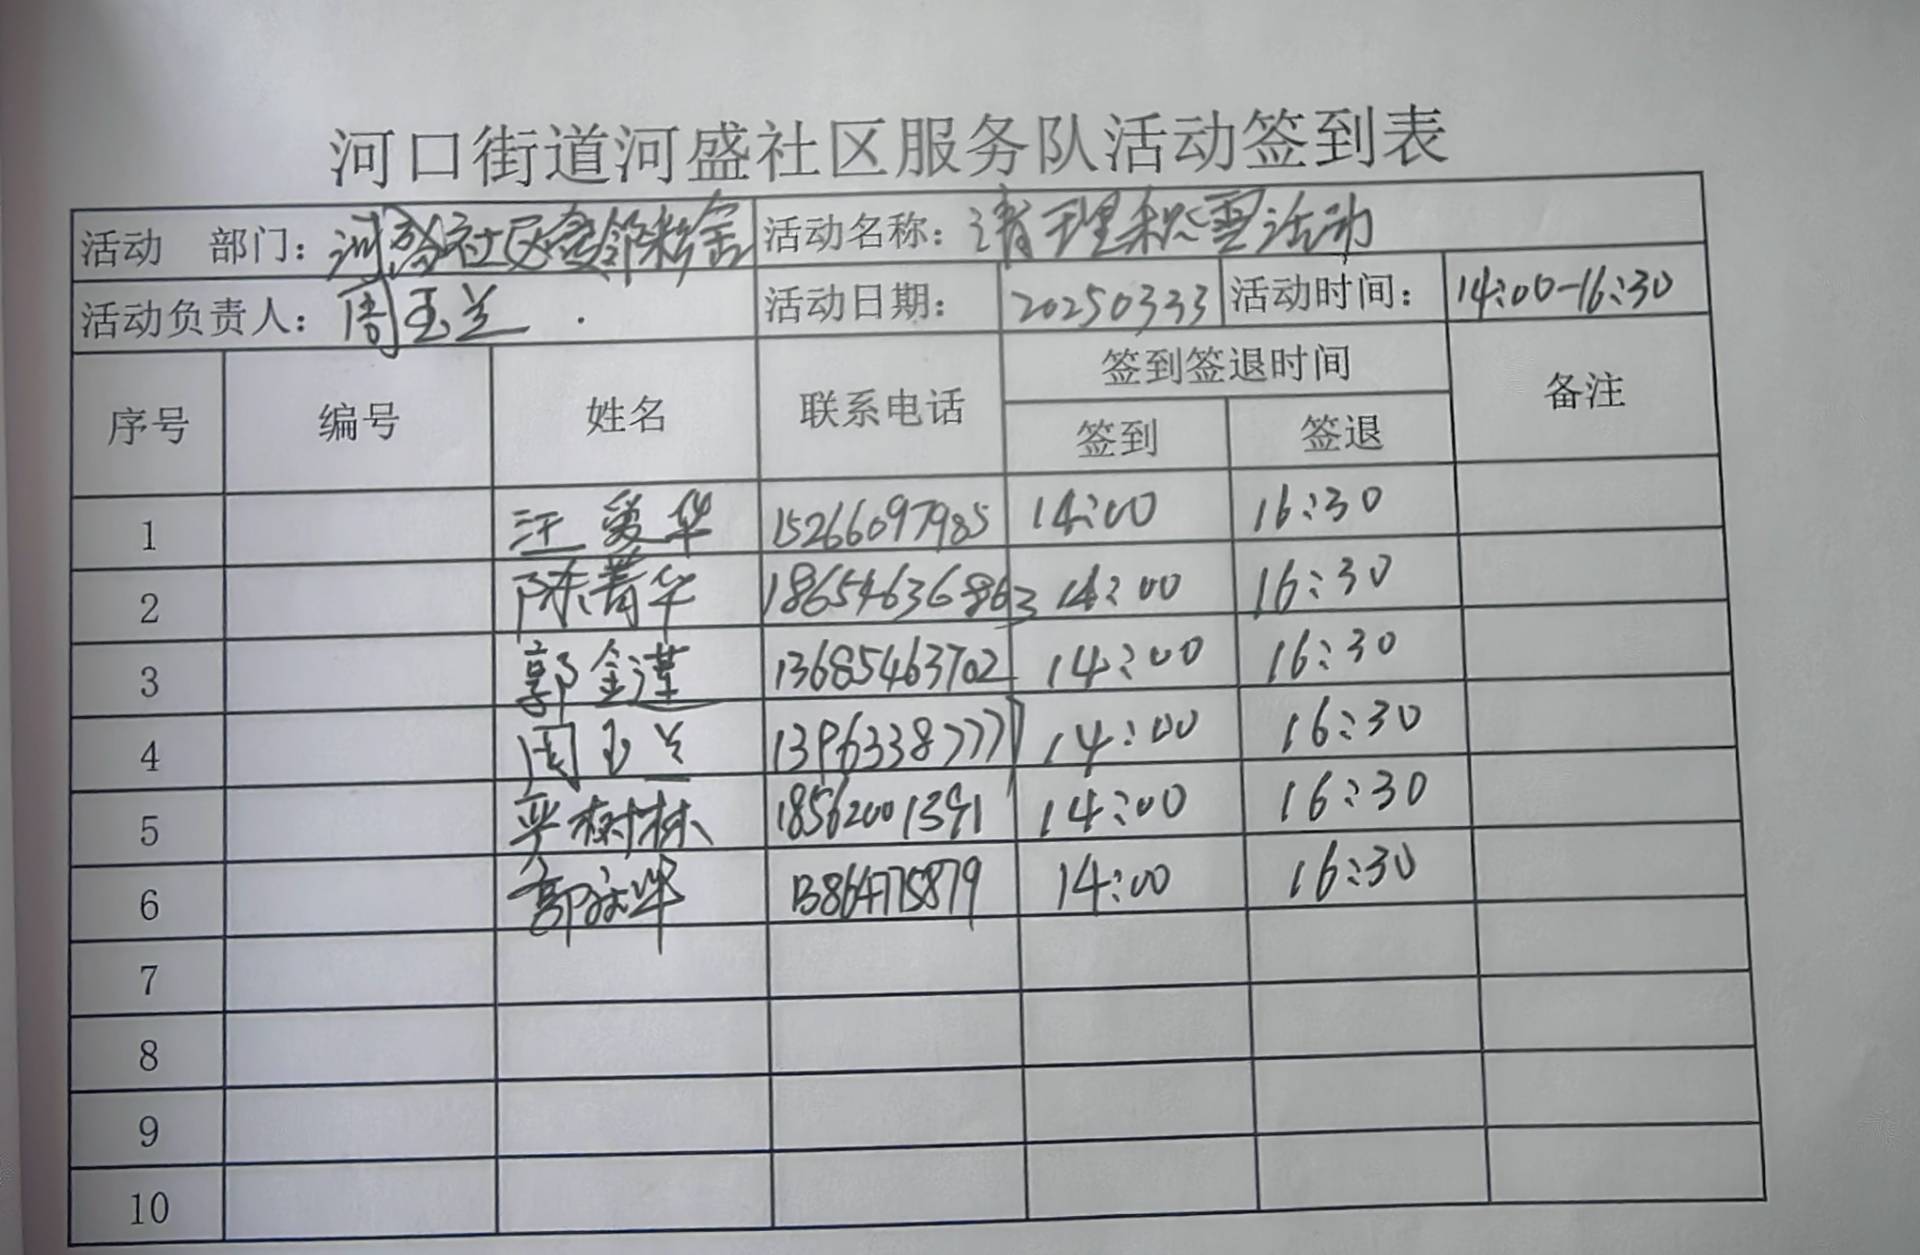 河口街道河盛社区服务队活动签到表
活动 部门： 河盛社区 活动名称： 清理积雪活动
活动负责人： 周玉兰 活动日期： 20250333 活动时间： 14:00-16:30
序号 编号 姓名 联系电话 签到签退时间 备注
签到 签退
1 汪爱华 15266097985 14:00 16:30
2 陈菁华 18654636863 14:00 16:30
3 郭金滢 13685463702 14:00 16:30
4 周玉兰 13963387777 14:00 16:30
5 树林 18562001391 14:00 16:30
6 13864775879 14:00 16:30
7
8
9
10